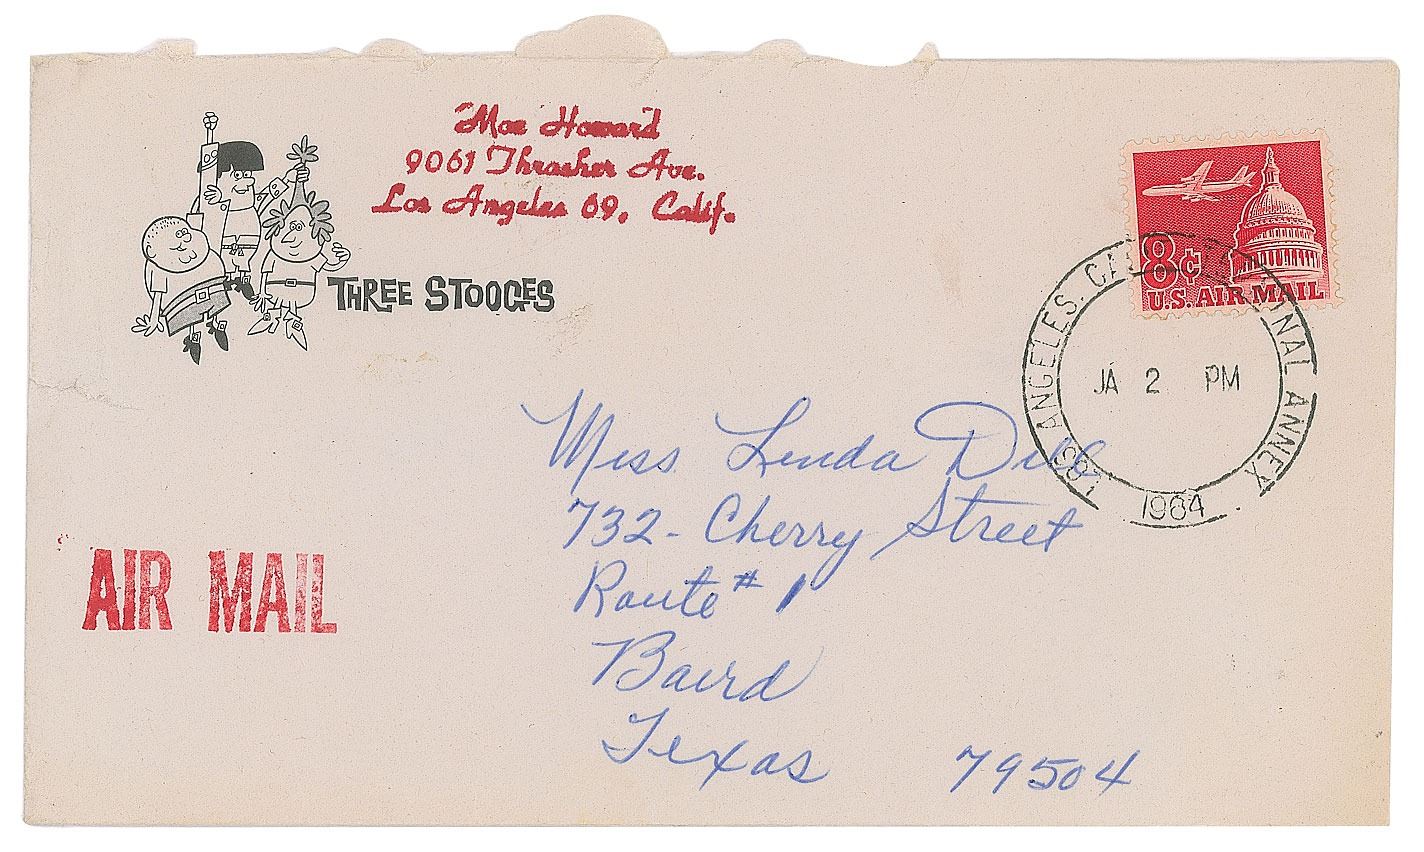 Moe Howard
9061 Thrasher Ave.
Los Angeles 69, Calif.
THREE STOOGES
8¢
U.S. AIR MAIL
LOS ANGELES, CA
NAL ANNEX
JA 2 PM
1964
Miss Linda Dill
732- Cherry Street
Route # 1
Baird
Texas 79504
AIR MAIL